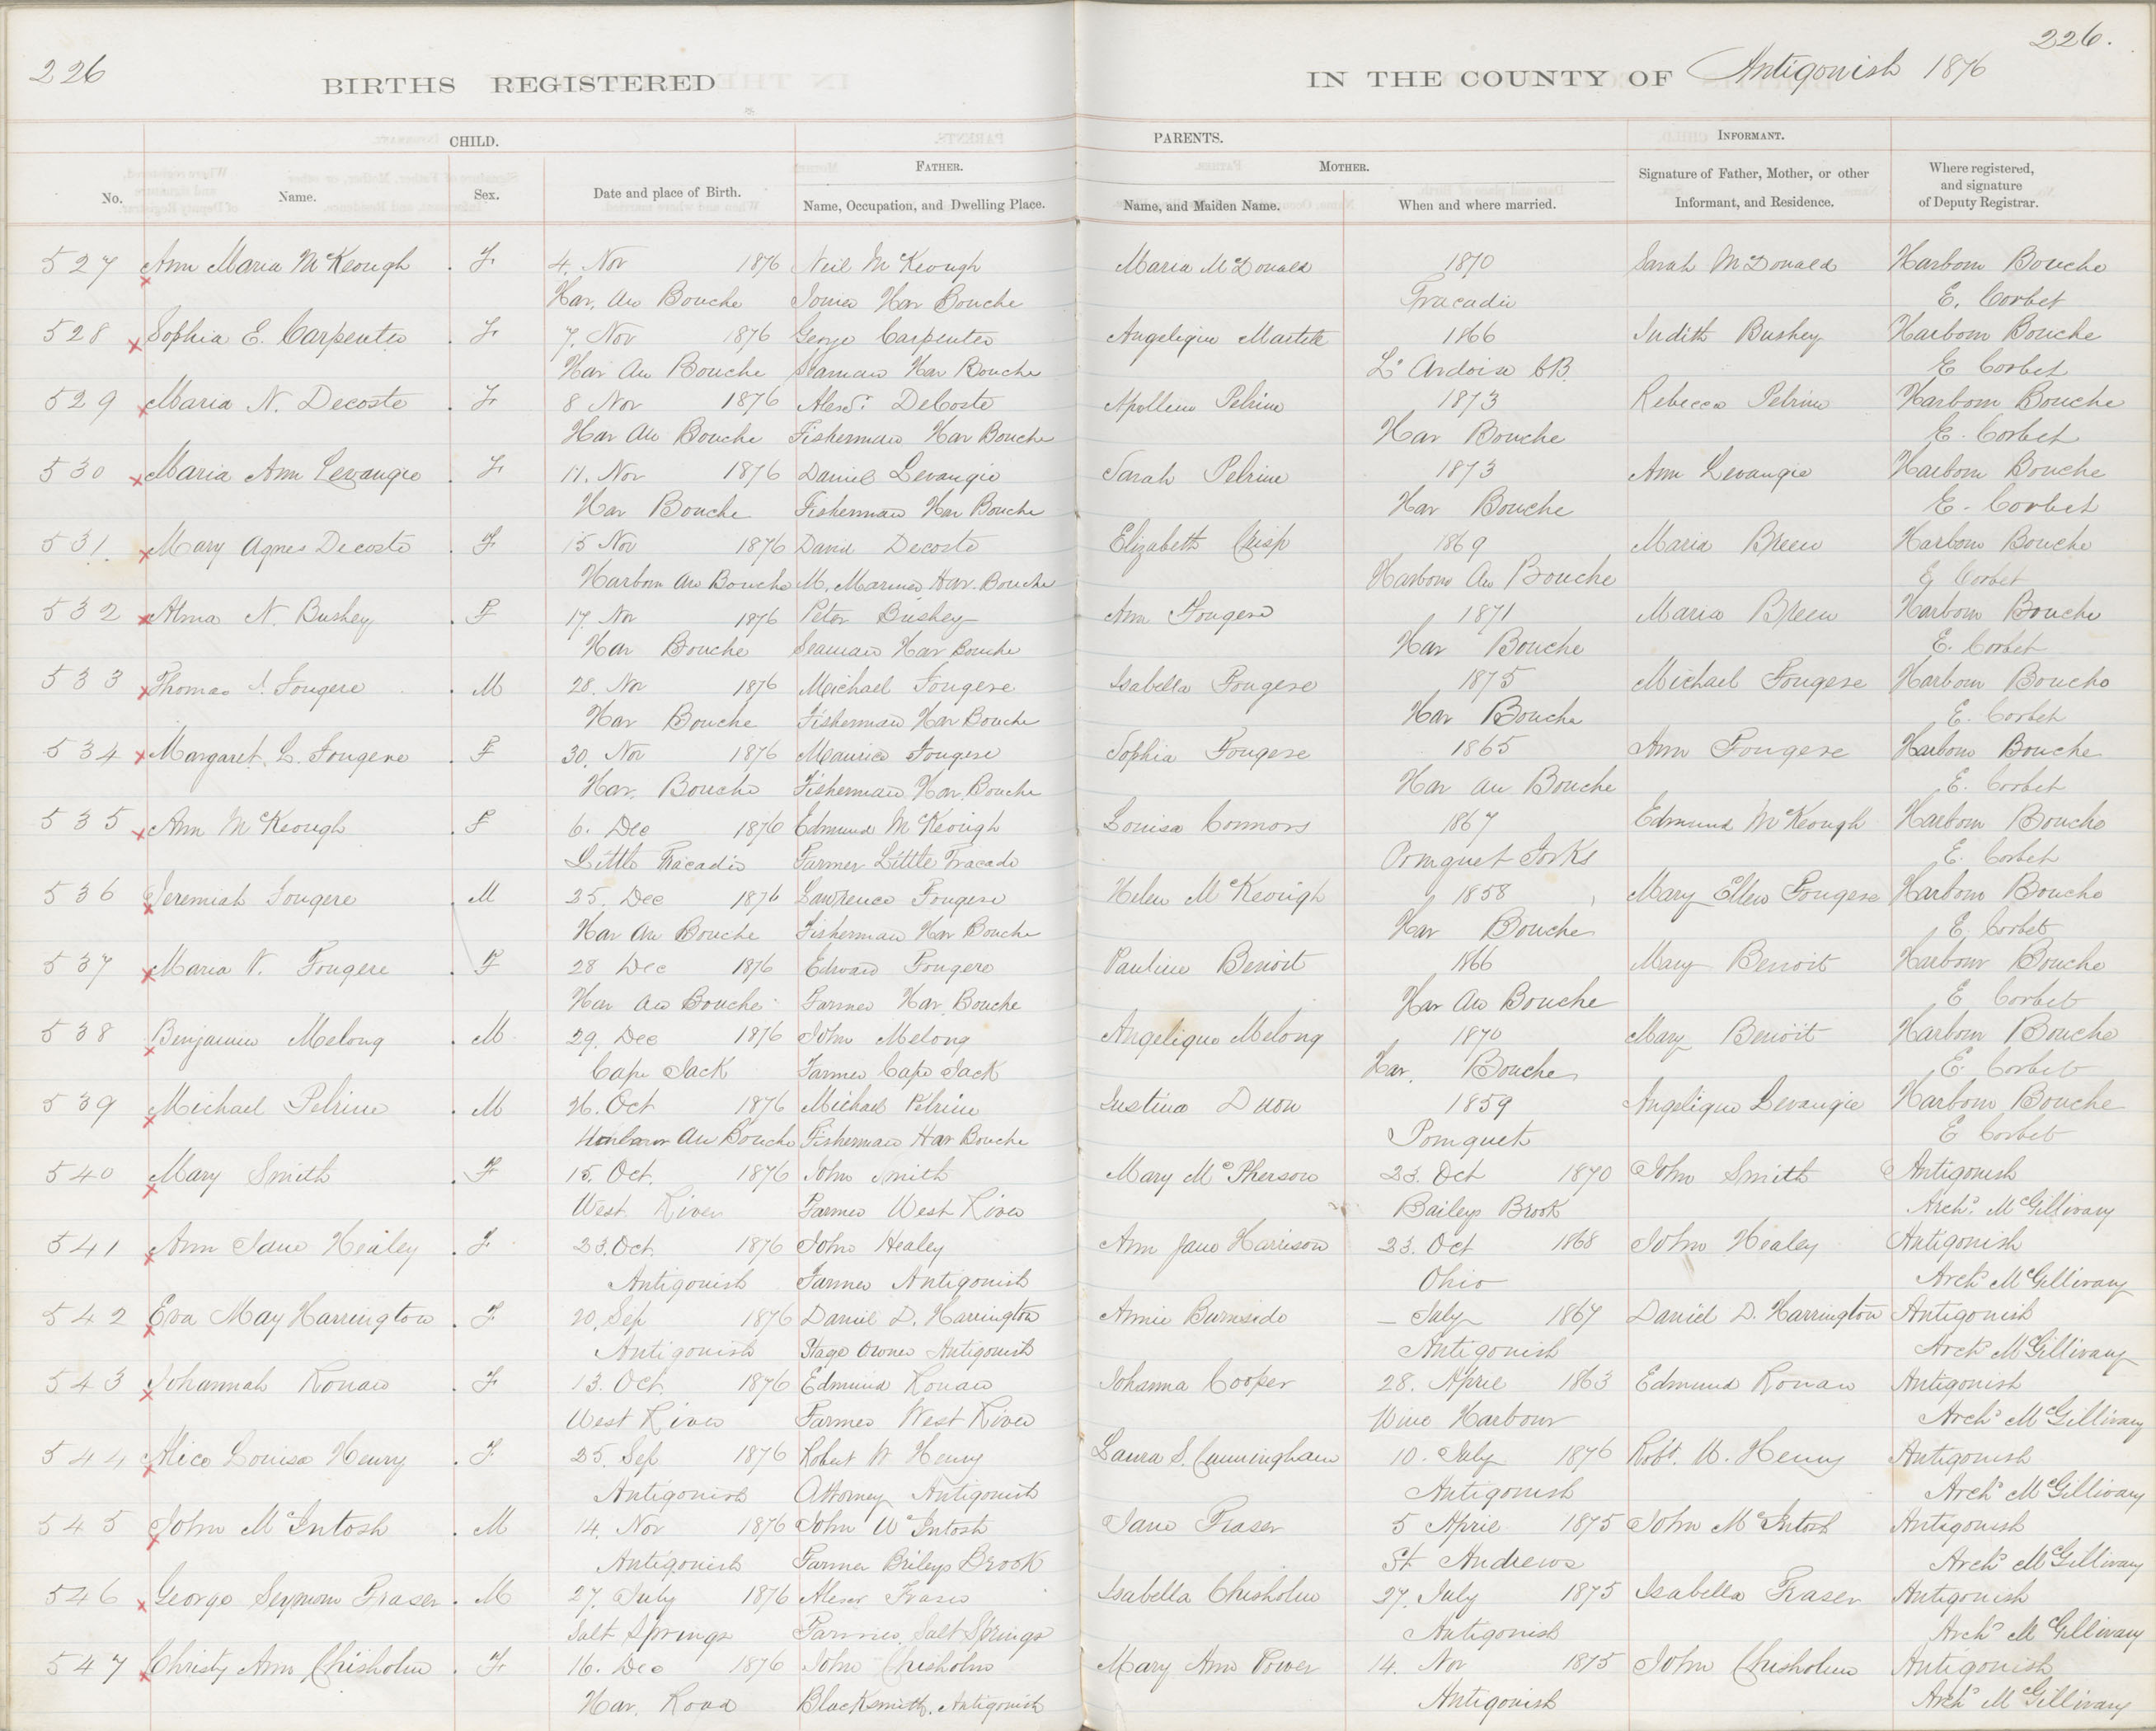 226
226.
BIRTHS REGISTERED IN THE COUNTY OF Antigonish 1876
CHILD. PARENTS. INFORMANT.
FATHER. MOTHER.
No. Name. Sex. Date and place of Birth. Name, Occupation, and Dwelling Place. Name, and Maiden Name. When and where married. Signature of Father, Mother, or other Informant, and Residence. Where registered, and signature of Deputy Registrar.
527 Ann Maria McKeough F 4. Nov 1876 Neil McKeough Maria McDonald 1870 Sarah McDonald Harbour Bouche
Har. Au Bouche Har Bouche Tracadie E. Corbet
528 Sophia E. Carpenter F 7. Nov 1876 George Carpenter Angelique Martell 1866 Judith Bushey Harbour Bouche
Har Au Bouche Seaman Har Bouche L'Ardoise CB. E Corbet
529 Maria N. Decoste F 8 Nov 1876 Alexr. DeCoste Pelrine 1873 Rebecca Pelrine Harbour Bouche
Har Au Bouche Fisherman Har Bouche Har Bouche E. Corbet
530 Maria Ann Levangie F 11. Nov 1876 Daniel Levangie Sarah Pelrine 1873 Ann Levangie Harbour Bouche
Har Bouche Fisherman Har Bouche Har Bouche E. Corbet
531. Mary Agnes Decoste F 15 Nov 1876 David Decoste Elizabeth Crisp 1869 Maria Breen Harbour Bouche
Harbour Au Bouche M. Mariner Har. Bouche Harbour Au Bouche E Corbet
532 Alma N. Bushey F 17. Nov 1876 Peter Bushey Ann Fougere 1871 Maria Breen Harbour Bouche
Har Bouche Seaman Har Bouche Har Bouche E. Corbet
533 Thomas Fougere M 28. Nov 1876 Michael Fougere Isabella Fougere 1875 Michael Fougere Harbour Bouche
Har Bouche Fisherman Har Bouche Har Bouche E. Corbet
534 Margaret. L. Fougere F 30. Nov 1876 Maurice Fougere Sophia Fougere 1865 Ann Fougere Harbour Bouche
Har. Bouche Fisherman Har. Bouche Har au Bouche E. Corbet
535 Ann McKeough F 6. Dec 1876 Edmund McKeough Louisa Connors 1867 Edmund McKeough Harbour Bouche
Little Tracadie Farmer Little Tracade Pomquet Forks E. Corbet
536 Jeremiah Fougere M 25. Dec 1876 Lawrence Fougere Helen McKeough 1858 Mary Ellen Fougere Harbour Bouche
Har Au Bouche Fisherman Har Bouche Har Bouche E. Corbet
537 Maria V. Fougere F 28 Dec 1876 Edward Fougere Pauline Benoit 1866 Mary Benoit Harbour Bouche
Har Au Bouche Farmer Har. Bouche Har Au Bouche E Corbet
538 Benjamin Melong M 29. Dec 1876 John Melong Angelique Melong 1870 Mary Benoit Harbour Bouche
Cape Jack Farmer Cape Jack Har. Bouche E. Corbet
539 Michael Pelrine M 26. Oct 1876 Michael Pelrine Justina Duon 1859 Angelique Levangie Harbour Bouche
Harbour Au Bouche Fisherman Har Bouche Pomquet E Corbet
540 Mary Smith F 15. Oct. 1876 John Smith Mary McPherson 23. Oct 1870 John Smith Antigonish
West River Farmer West River Baileys Brook Archd. McGillivary
541 Ann Jane Healey F 23. Oct. 1876 John Healey Ann Jane Harrison 23. Oct 1868 John Healey Antigonish
Antigonish Farmer Antigonish Ohio Archd McGillivary
542 Eva May Harrington F 20. Sep 1876 Daniel D. Harrington Annie Burnside – July 1867 Daniel D. Harrington Antigonish
Antigonish Stage Owner Antigonish Antigonish Archd McGillivary
543 Johannah Ronan F 13. Oct. 1876 Edmund Ronan Johanna Cooper 28. April 1863 Edmund Ronan Antigonish
West River Farmer West River Wine Harbour Archd McGillivary
544 Alice Louisa Henry F 25. Sep 1876 Robert W Henry Laura S. Cunningham 10. July 1876 Robt. W. Henry Antigonish
Antigonish Attorney Antigonish Antigonish Archd McGillivary
545 John McIntosh M 14. Nov 1876 John McIntosh Jane Fraser 5 April 1875 John McIntosh Antigonish
Antigonish Farmer Brileys Brook St Andrews Archd McGillivary
546 George Seymour Fraser M 27. July 1876 Alexr Fraser Isabella Chisholm 27. July 1875 Isabella Fraser Antigonish
Salt Springs Farmer Salt Springs Antigonish Archd McGillivary
547 Christy Ann Chisholm F 16. Dec 1876 John Chisholm Mary Ann Power 14. Nov 1875 John Chisholm Antigonish
Har. Road Blacksmith. Antigonish Antigonish Archd McGillivary